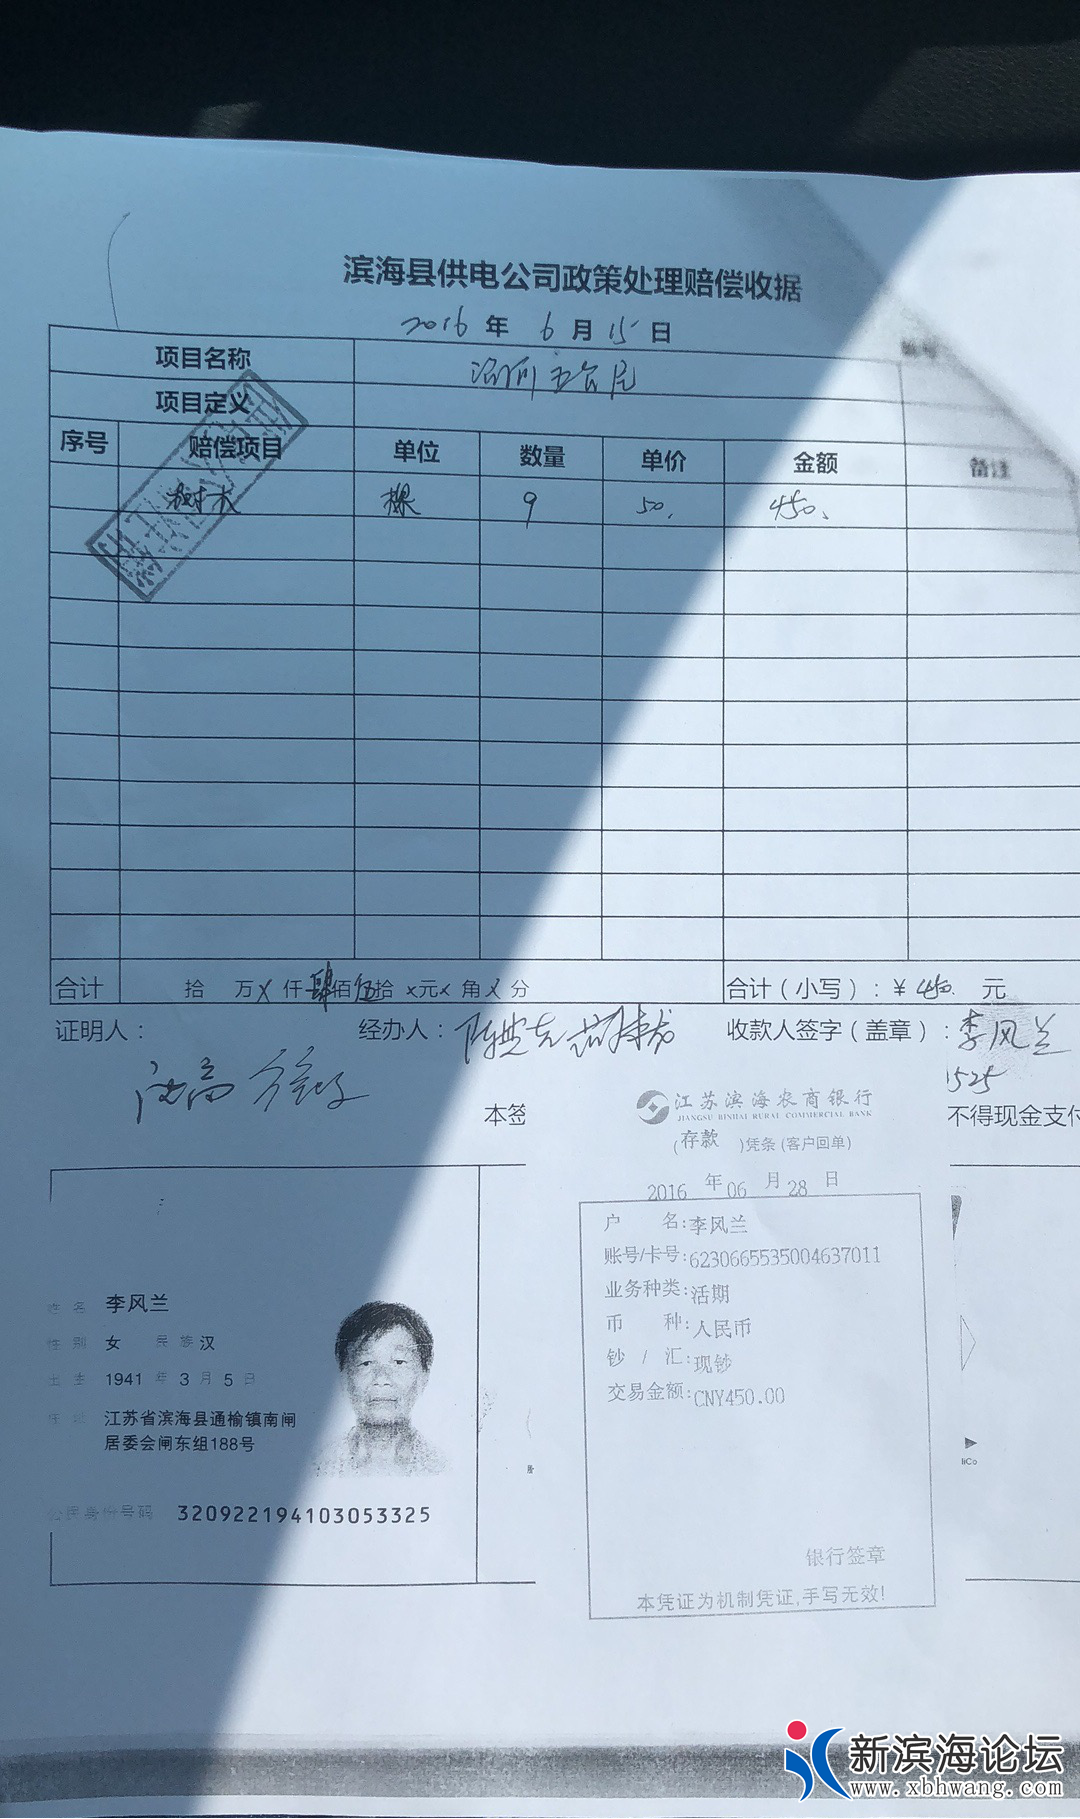 滨海县供电公司政策处理赔偿收据
2016 年 6 月 15 日
项目名称
项目定义
序号 赔偿项目 单位 数量 单价 金额 备注
树木 棵 9 50. 450.
合计 拾 万 x 仟 肆 佰 伍 拾 x 元 x 角 x 分 合计（小写）: ¥ 450. 元
证明人： 经办人： 收款人签字（盖章）: 李风兰
1525
本签
不得现金支付
江苏滨海农商银行
JIANGSU BINHAI RURAL COMMERCIAL BANK
(存款 )凭条 (客户回单)
2016 年 06 月 28 日
户 名:李风兰
账号/卡号:6230665535004637011
业务种类:活期
币 种:人民币
钞 / 汇:现钞
交易金额:CNY450.00
银行签章
本凭证为机制凭证,手写无效!
姓名 李风兰
性别 女 民族 汉
出生 1941 年 3 月 5 日
住址 江苏省滨海县通榆镇南闸
居委会闸东组188号
公民身份号码 320922194103053325
liCo
新滨海论坛
www.xbhwang.com